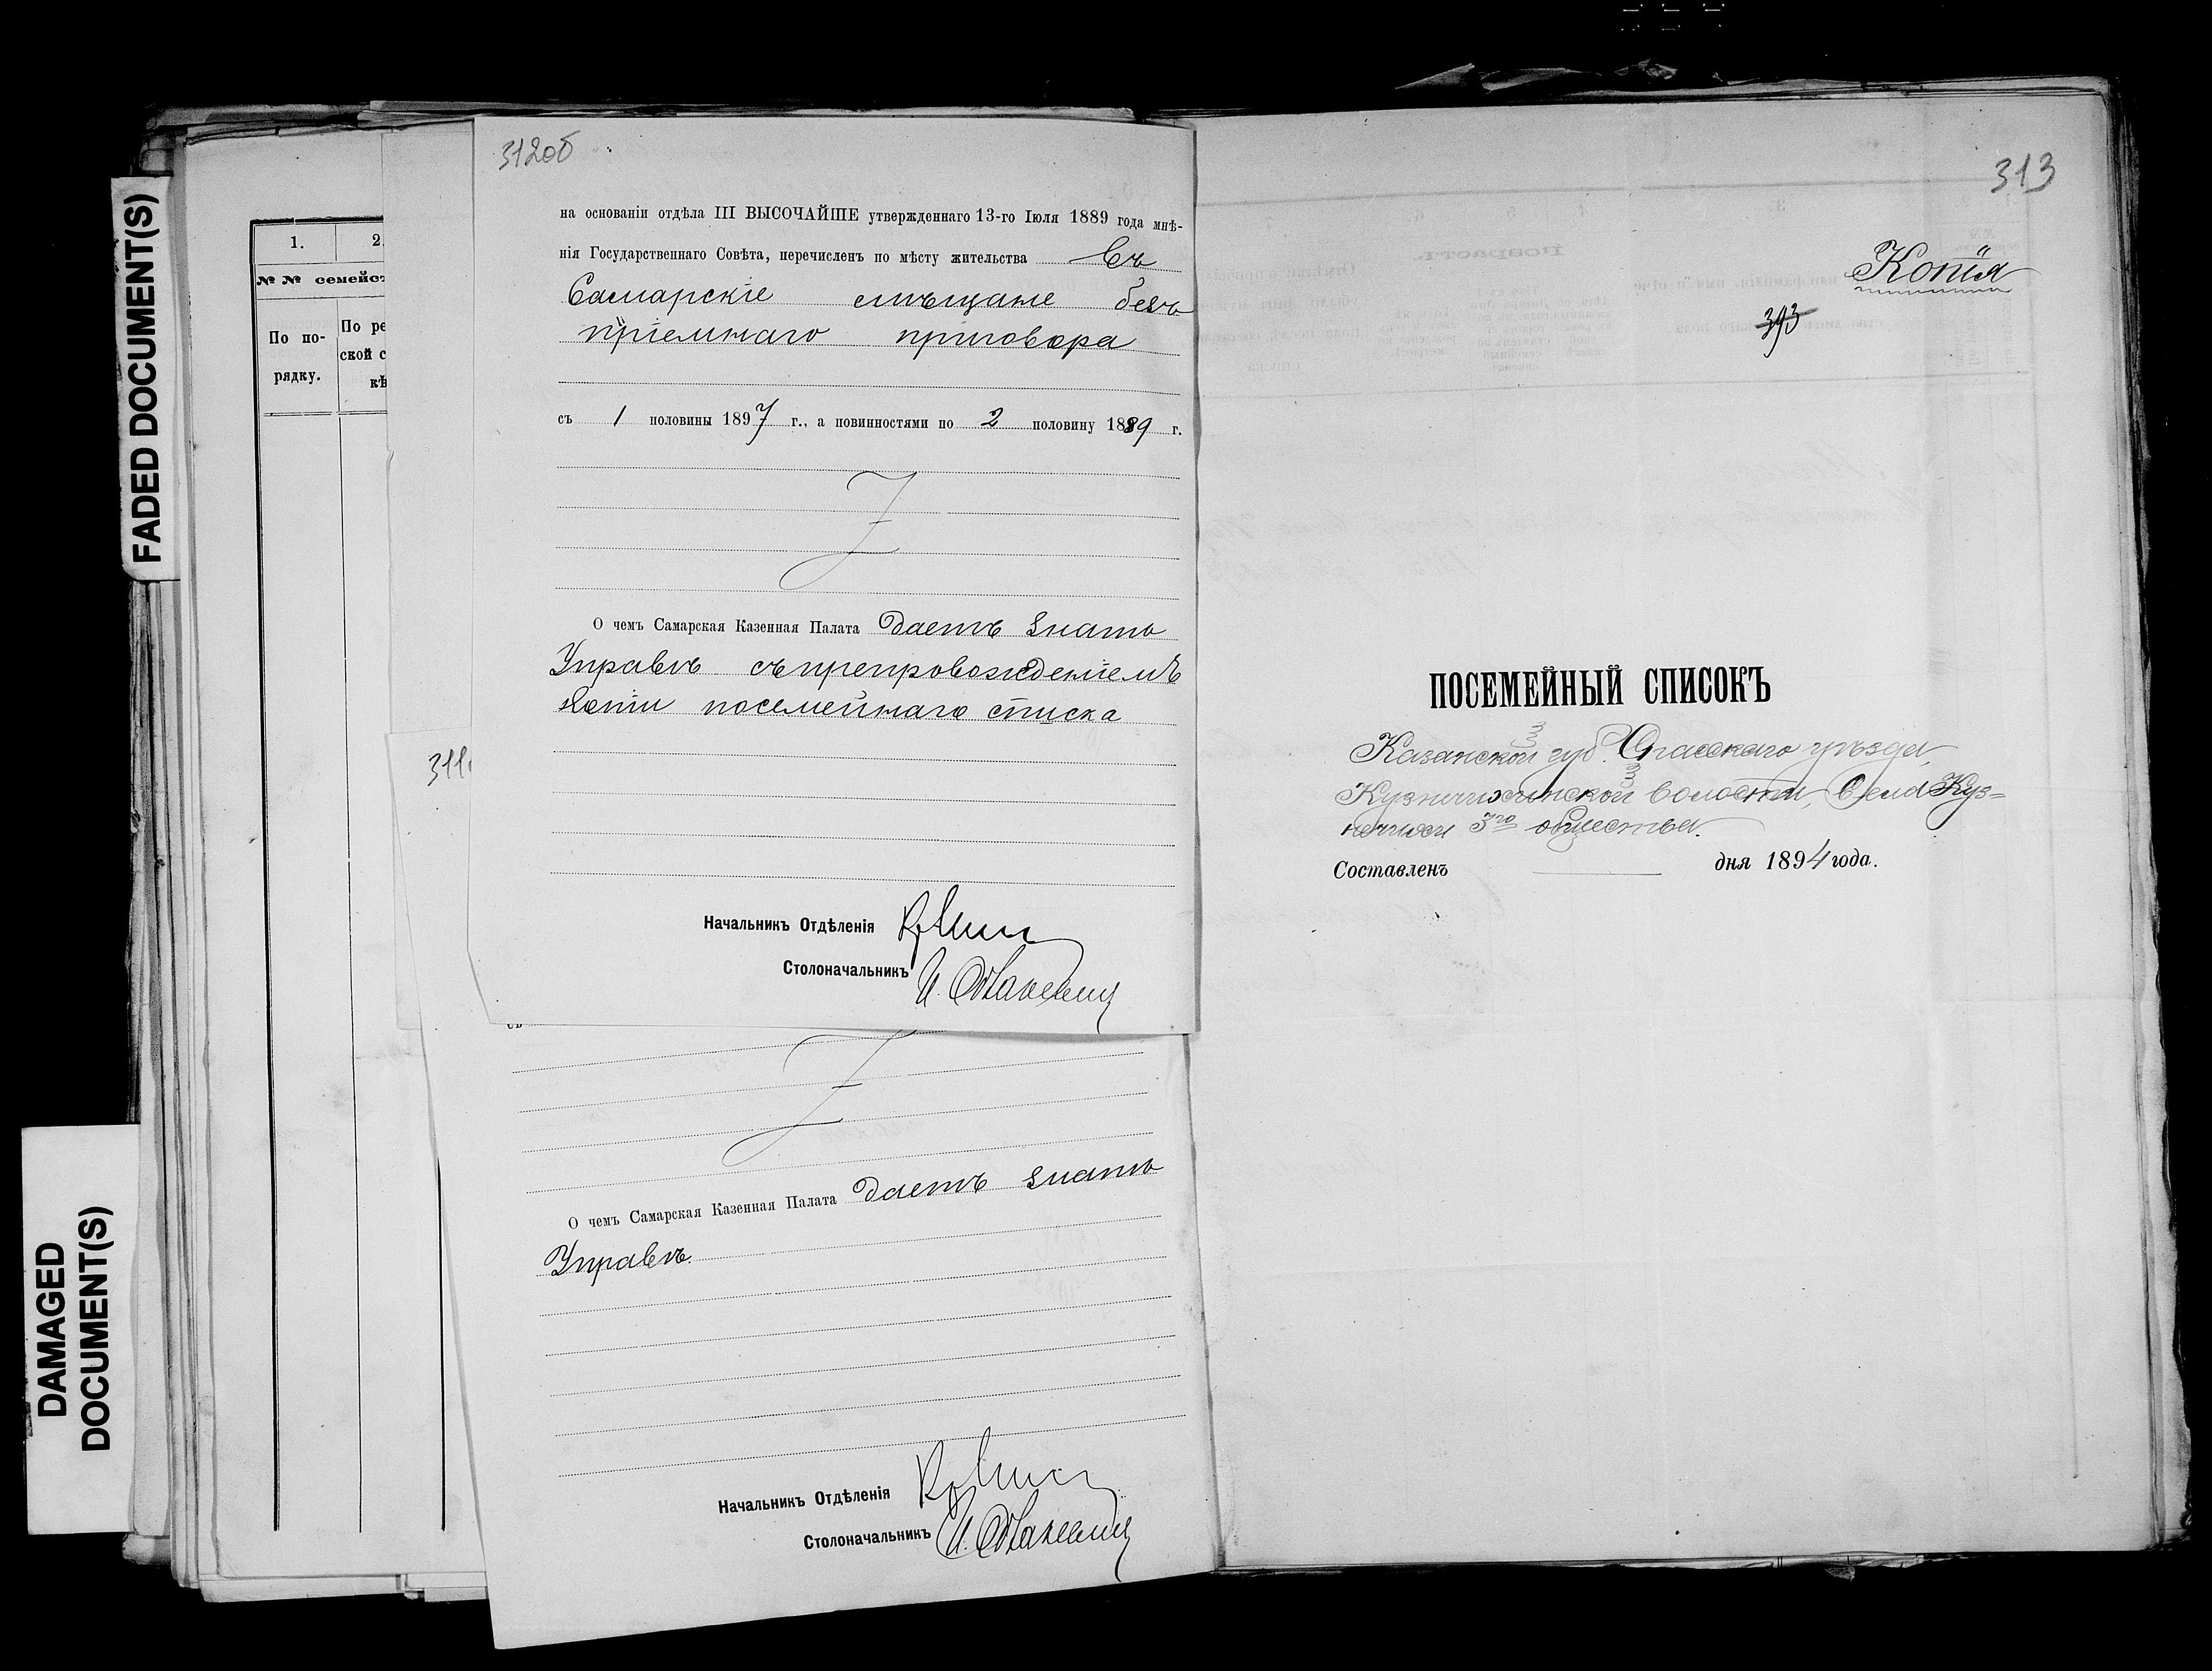 FADED DOCUMENT(S)
DAMAGED
DOCUMENT(S)
1. 2.
№№ семейст
По по-
рядку.
По ре
ской с
кѣ
312об
на основаніи отдѣла III ВЫСОЧАЙШЕ утвержденнаго 13-го Іюля 1889 года мнѣ-
нія Государственнаго Совѣта, перечисленъ по мѣсту жительства въ
Самарскіе мѣщане безъ
пріемнаго приговора
съ 1 половины 1897 г., а повинностями по 2 половину 1889 г.
О чемъ Самарская Казенная Палата даетъ знать
Управѣ съ препровожденіемъ
копіи посемейнаго списка
Начальникъ Отдѣленія
Столоначальникъ
311
съ
О чемъ Самарская Казенная Палата даетъ знать
Управѣ.
Начальникъ Отдѣленія
Столоначальникъ
313
Копія
393
ПОСЕМЕЙНЫЙ СПИСОКЪ
Казанской губ. Спасскаго уѣзда,
Кузнечихинской волости, Села Куз=
нечихи 3го общества.
Составленъ дня 1894 года.